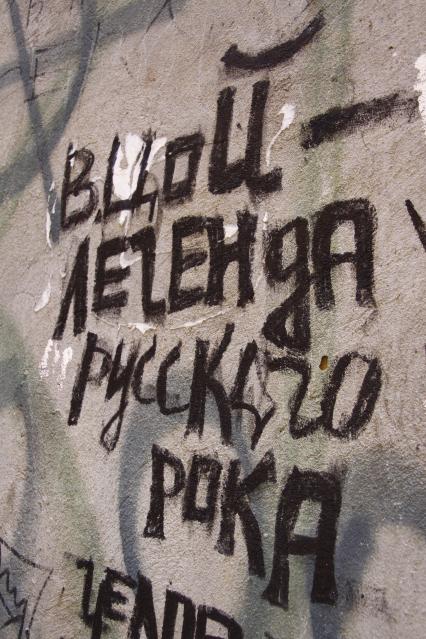 В.ЦОЙ —
ЛЕГЕНДА
РУССКОГО
РОКА